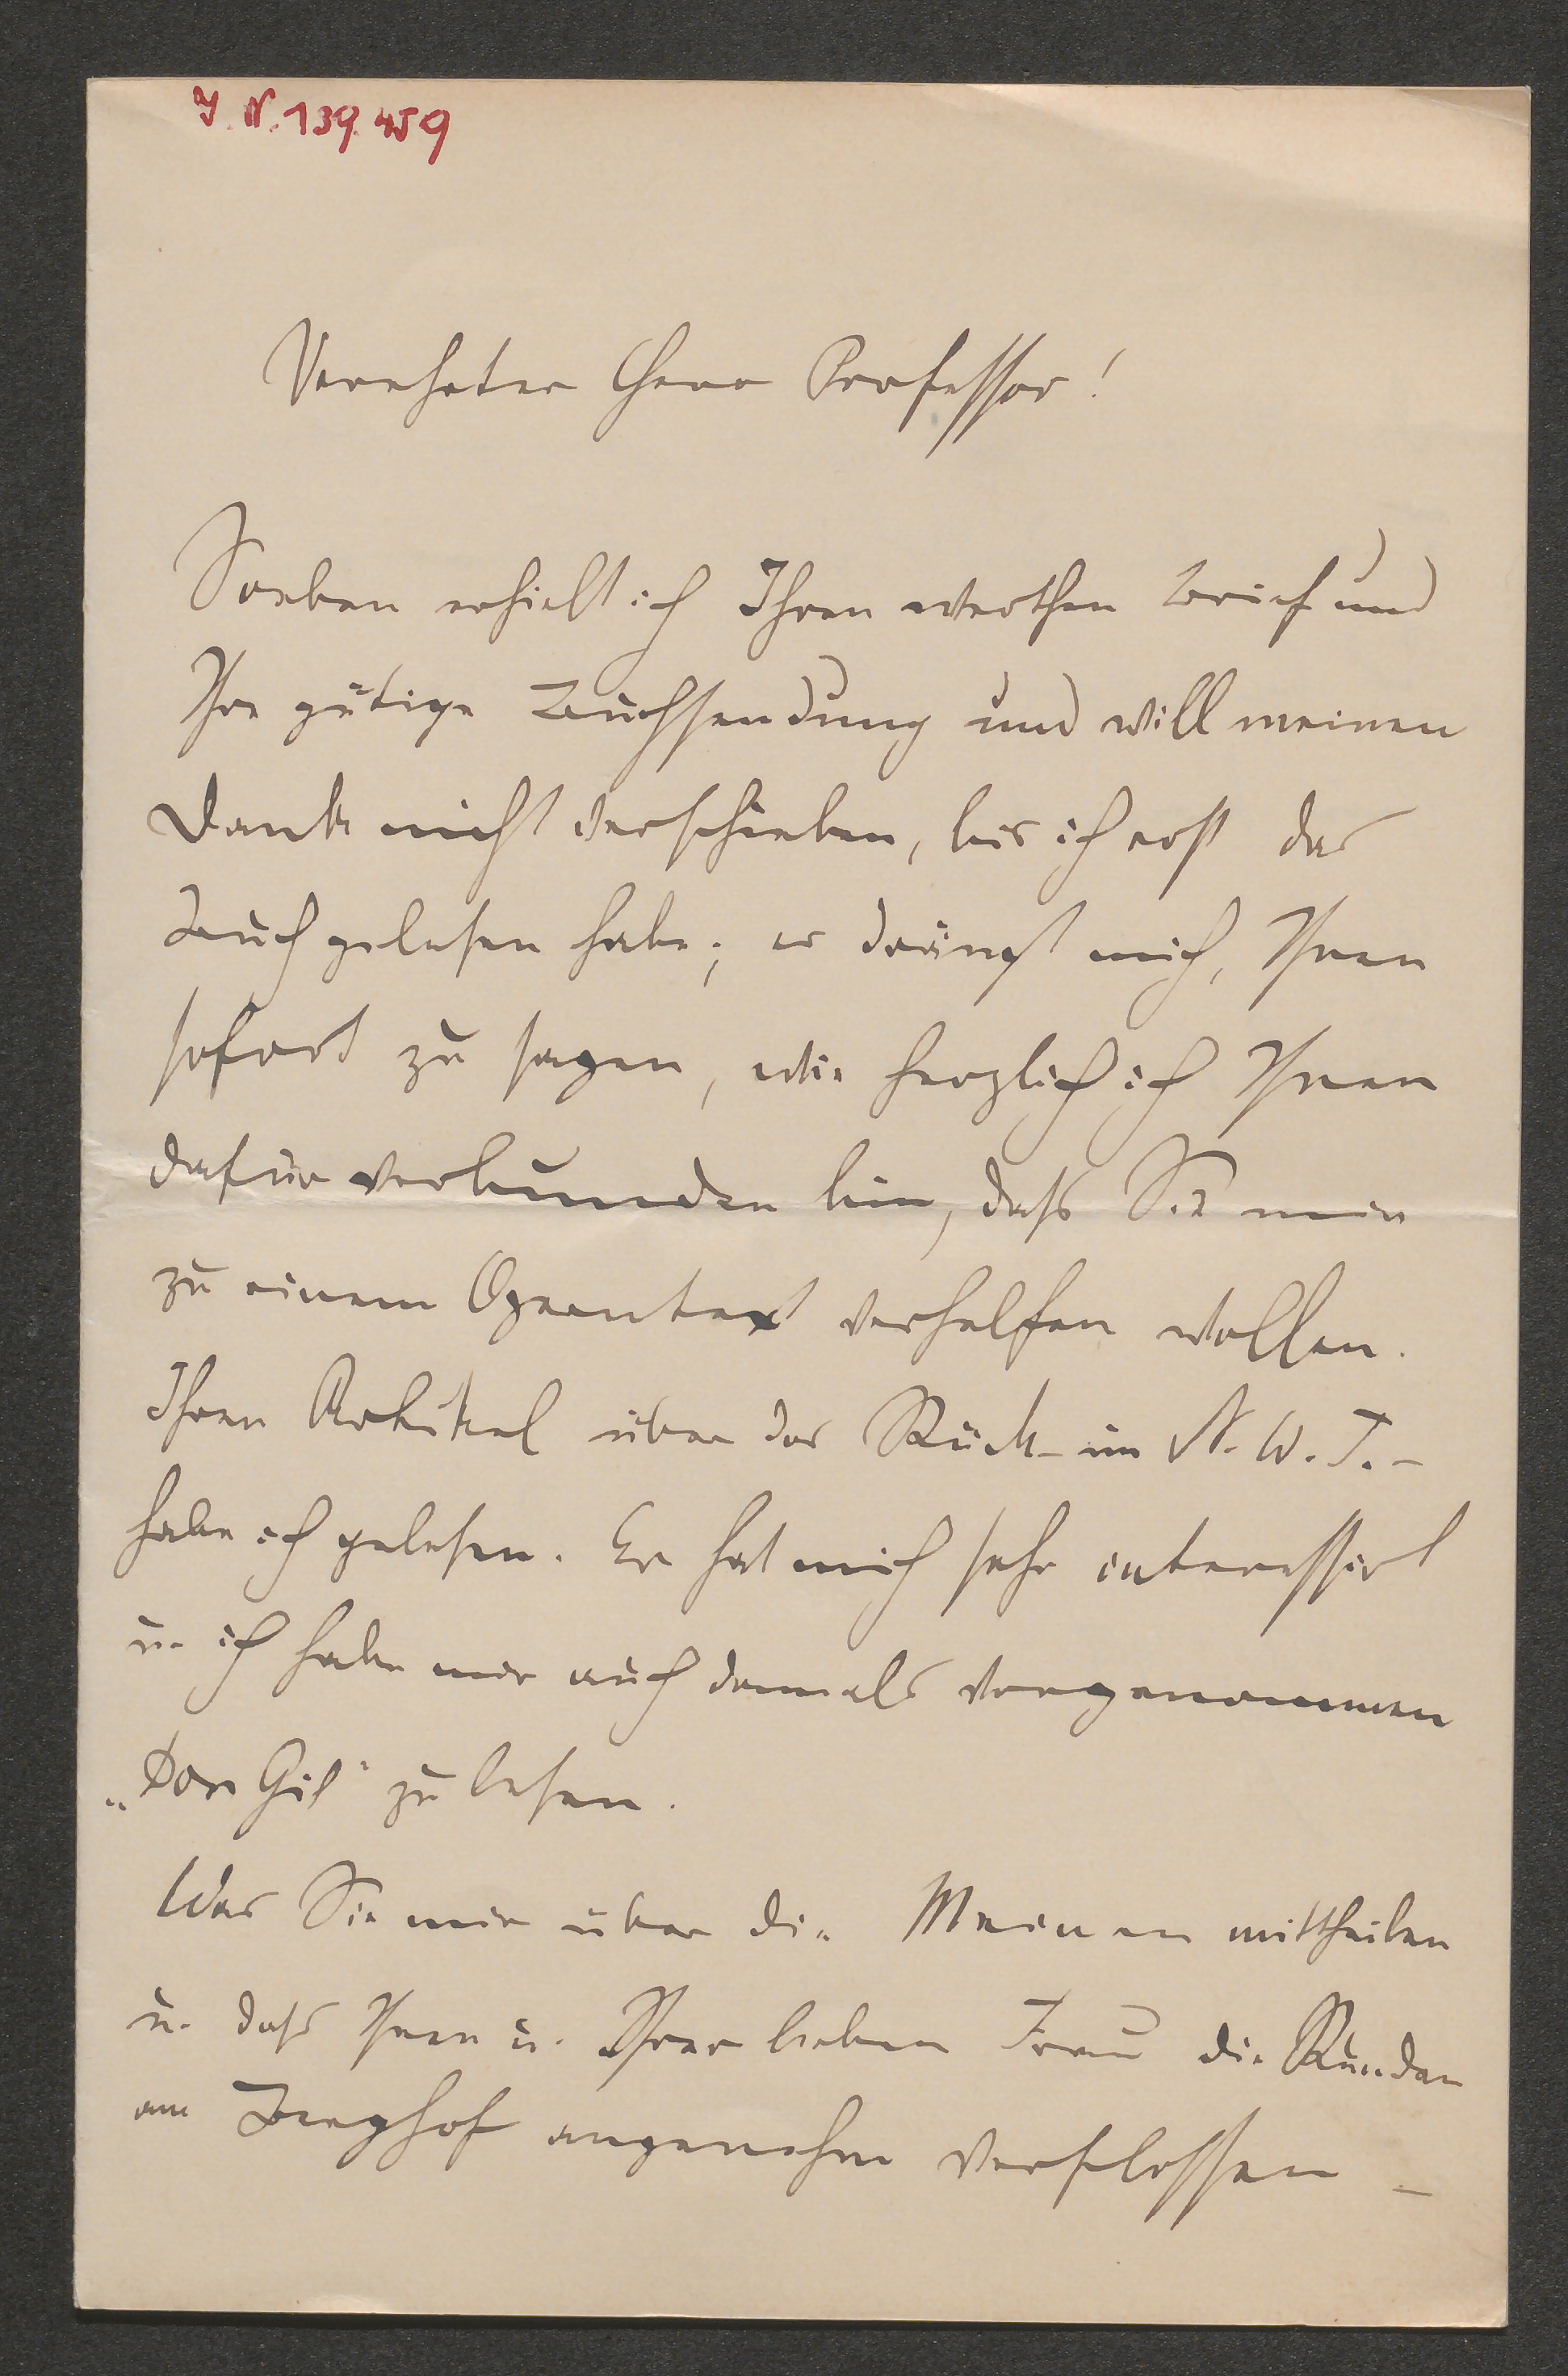 J. N. 139.459
Verehrter Herr Professor!
Soeben erhielt ich Ihren werthen Brief und
Ihre gütige Buchsendung und will meinen
Dank nicht verschieben, bis ich erst das
Buch gelesen habe; es drängt mich, Ihnen
sofort zu sagen, wie herzlich ich Ihnen
dafür verbunden bin, daß Sie mir
zu einem Operntext verhelfen wollen.
Ihren Artikel über das Stück – im N. W. T. –
habe ich gelesen. Er hat mich sehr interessirt
u. ich habe mir auch damals vorgenommen
„Don Gil“ zu lesen.
Was Sie mir über die Meinen mittheilen
u. daß Ihnen u. Ihrer lieben Frau die Stunden
am Berghof angenehm verflossen –